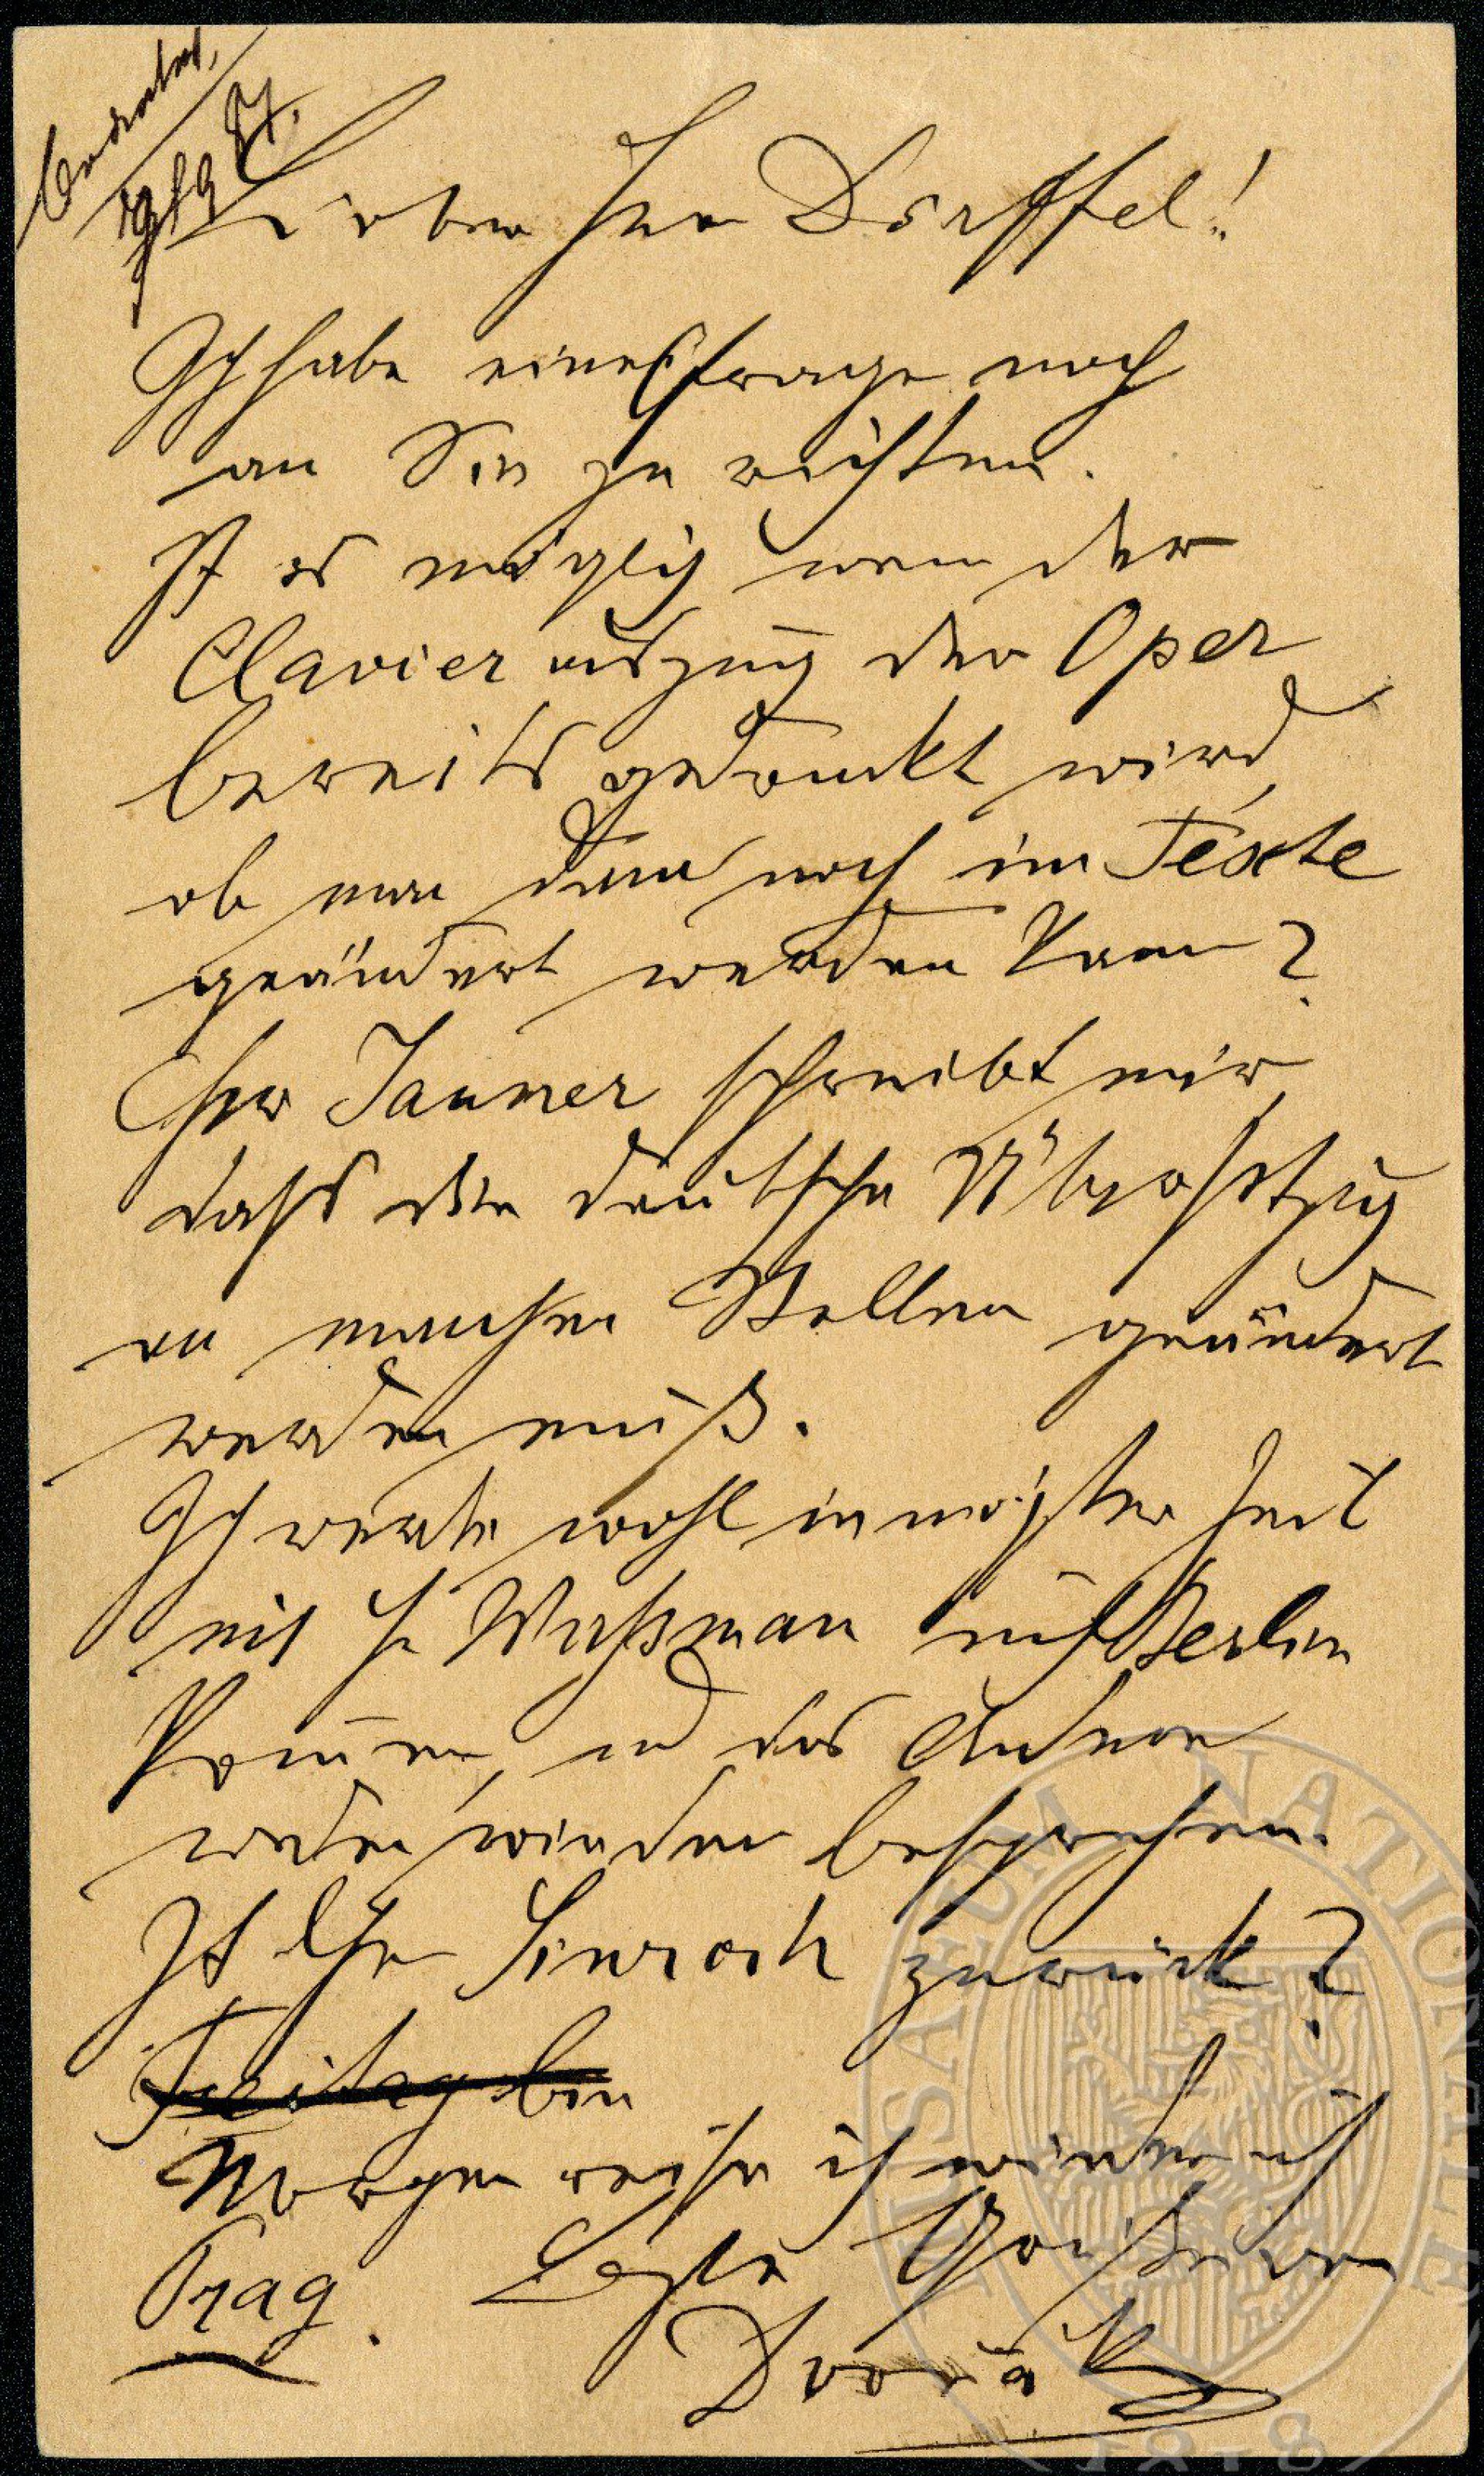 19/9 87.
Lieber Herr Dörffel!
Ich habe eine Frage noch
an Sie zu richten.
Ist es möglich wenn der
Clavierauszug der Oper
bereits gedruckt wird,
ob man dann noch im Texte
geändert werden kann?
Herr Jauner schreibt mir,
dass die deutsche Übersetzung
an manchen Stellen geändert
werden muß.
Ich werde wohl in nächster Zeit
mit H. nach Berlin
kommen, und das Andere
werden wir dan besprechen.
Ist Herr Simrock zurück?
Freitag bin
Morgen reise ich wieder nach
Prag. Beste Grüße von
Dvořák
MUSAEUM NATIONALE
1818